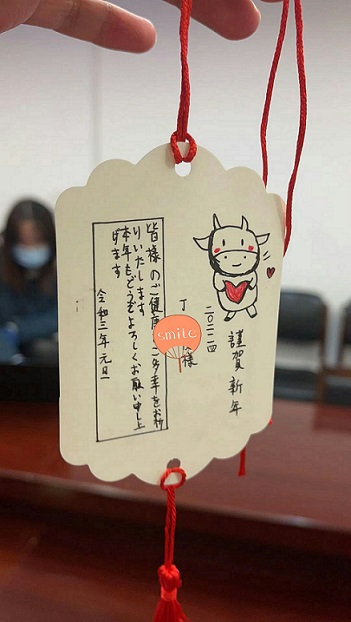 謹賀新年
丁 様
smile
皆様のご健康 ご多幸をお祈
りいたします
本年もどうぞよろしくお願い申し上
げます
令和三年 元旦